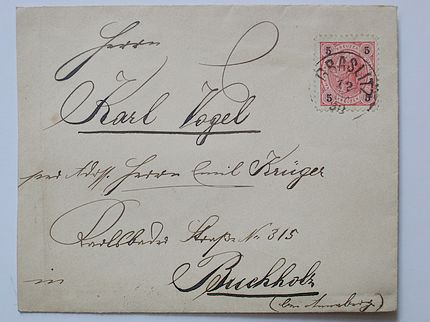 Herrn
Karl Vogel
per Adss. Herrn Emil Krüger
Karlsbader Straße Nr 315
in Buchholz
(bei Annaberg)
5 5
GRASLITZ
12
5 5